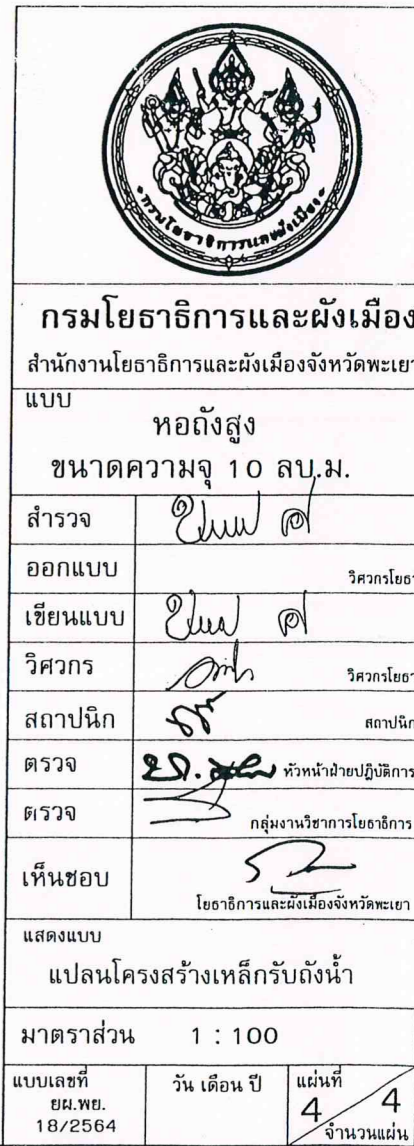 กรมโยธาธิการและผังเมือง
กรมโยธาธิการและผังเมือง
สำนักงานโยธาธิการและผังเมืองจังหวัดพะเยา
แบบ
หอถังสูง
ขนาดความจุ 10 ลบ.ม.
สำรวจ
ออกแบบ วิศวกรโยธา
เขียนแบบ
วิศวกร วิศวกรโยธา
สถาปนิก สถาปนิก
ตรวจ หัวหน้าฝ่ายปฏิบัติการ
ตรวจ กลุ่มงานวิชาการโยธาธิการ
เห็นชอบ
โยธาธิการและผังเมืองจังหวัดพะเยา
แสดงแบบ
แปลนโครงสร้างเหล็กรับถังน้ำ
มาตราส่วน 1 : 100
แบบเลขที่ วัน เดือน ปี แผ่นที่
ยผ.พย.
18/2564
4 4
จำนวนแผ่น